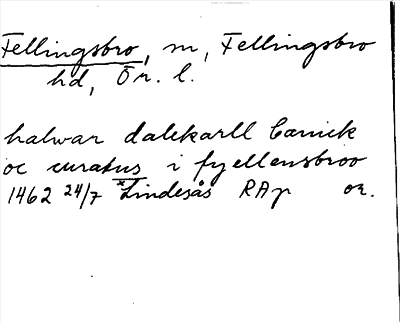 Fellingsbro, m, Fellingsbro
hd, Ör. l.
halwar dalekarll Canick
oc curatus i fyellensbroo
1462 24/7 *Lindesås RAp or.